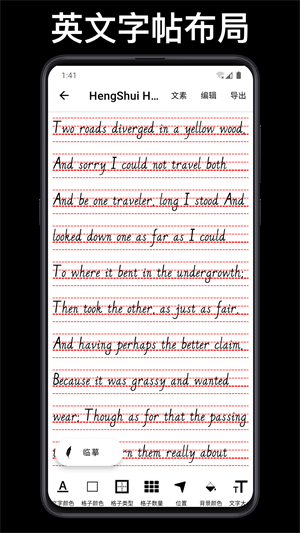 英文字帖布局
1:41
HengShui H... 文素 编辑 导出
Two roads diverged in a yellow wood,
And sorry I could not travel both
And be one traveler, long I stood And
looked down one as far as I could
To where it bent in the undergrowth;
Then took the other, as just as fair,
And having perhaps the better claim,
Because it was grassy and wanted
wear; Though as for that the passing
临摹 them really about
文字颜色 格子颜色 格子类型 格子数量 位置 背景颜色 文字大